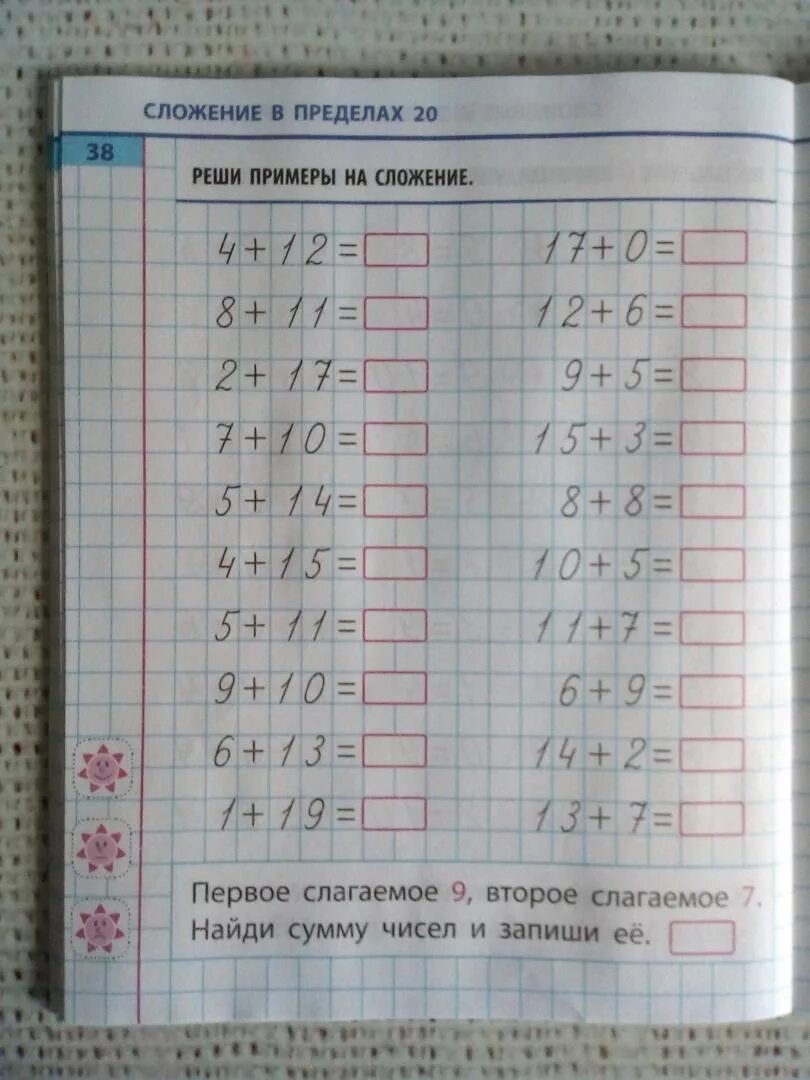 СЛОЖЕНИЕ В ПРЕДЕЛАХ 20
38
РЕШИ ПРИМЕРЫ НА СЛОЖЕНИЕ.
4+12= 17+0=
8+11= 12+6=
2+17= 9+5=
7+10= 15+3=
5+14= 8+8=
4+15= 10+5=
5+11= 11+7=
9+10= 6+9=
6+13= 14+2=
1+19= 13+7=
Первое слагаемое 9, второе слагаемое 7.
Найди сумму чисел и запиши её.